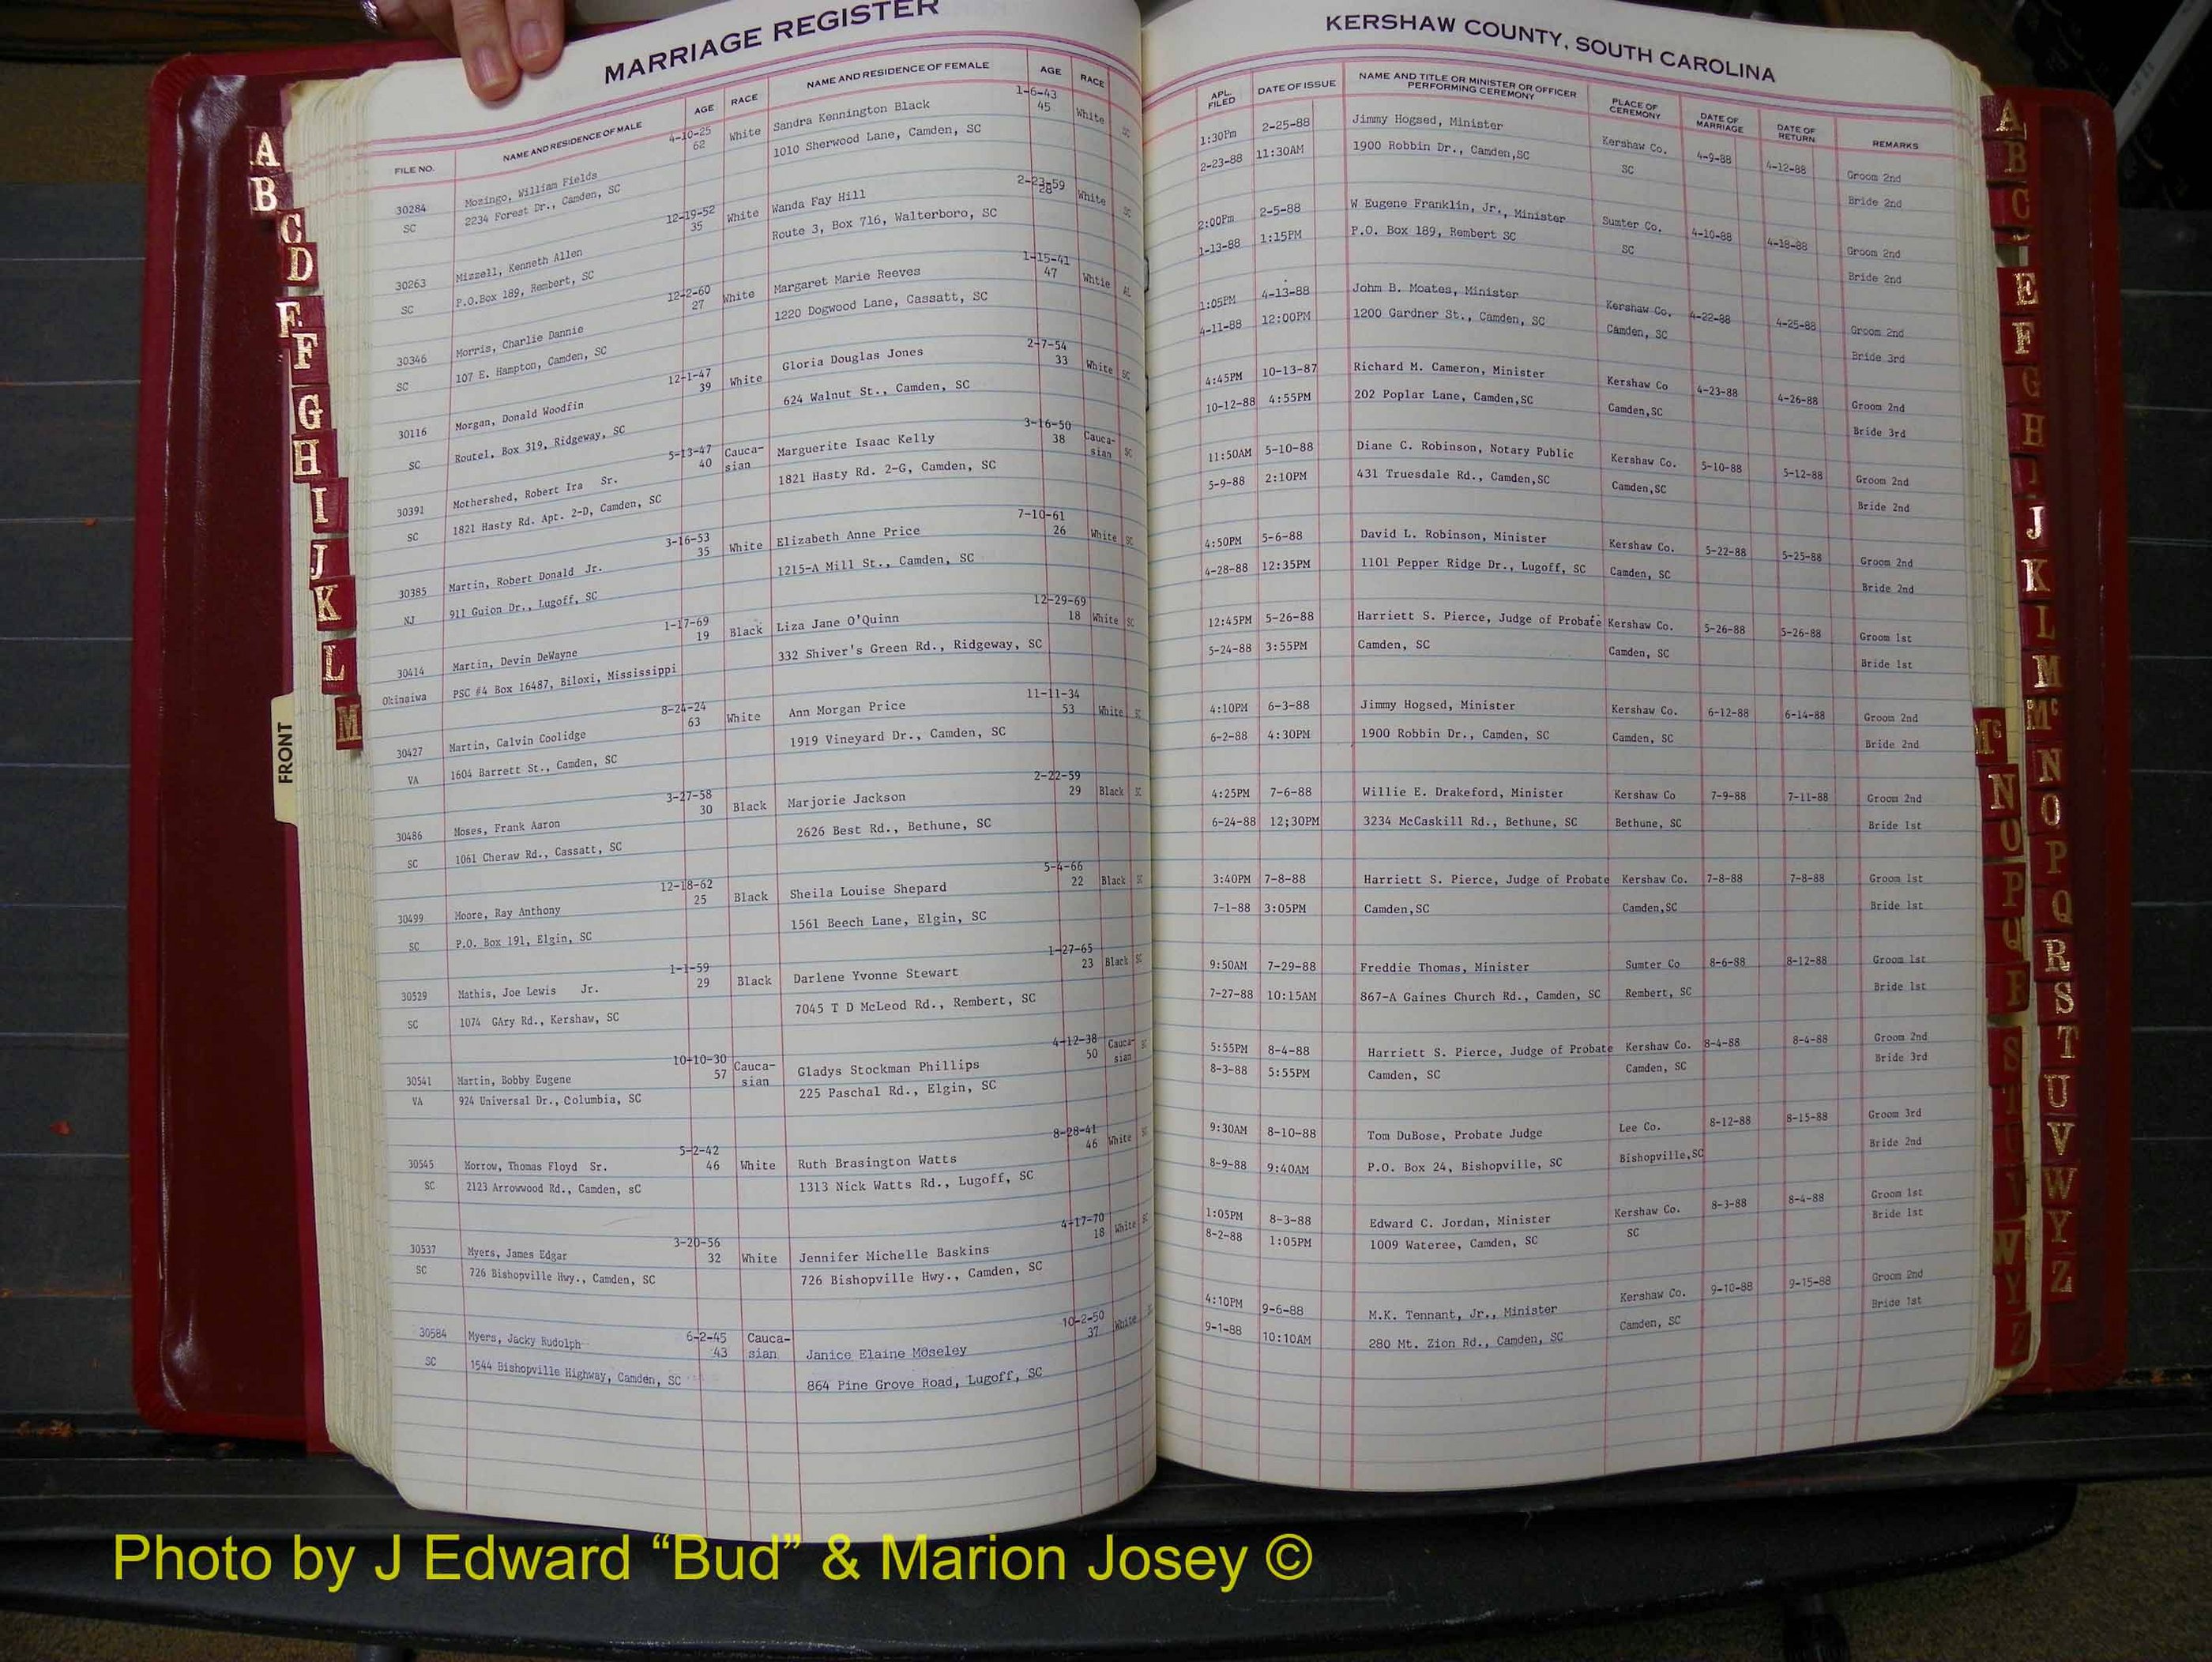 MARRIAGE REGISTER
FILE NO. NAME AND RESIDENCE OF MALE AGE RACE NAME AND RESIDENCE OF FEMALE AGE RACE
4-10-25 1-6-43
30284 Mozingo, William Fields 62 White Sandra Kennington Black 45 White SC
SC 2234 Forest Dr., Camden, SC 1010 Sherwood Lane, Camden, SC
12-19-52 2-23-59
30263 Mizzell, Kenneth Allen 35 White Wanda Fay Hill 28 White SC
SC P.O.Box 189, Rembert, SC Route 3, Box 716, Walterboro, SC
12-2-60 1-15-41
30346 Morris, Charlie Dannie 27 White Margaret Marie Reeves 47 Whtie AL
SC 107 E. Hampton, Camden, SC 1220 Dogwood Lane, Cassatt, SC
12-1-47 2-7-54
30116 Morgan, Donald Woodfin 39 White Gloria Douglas Jones 33 White SC
SC Route1, Box 319, Ridgeway, SC 624 Walnut St., Camden, SC
5-13-47 3-16-50
30391 Mothershed, Robert Ira Sr. 40 Cauca-sian Marguerite Isaac Kelly 38 Cauca-sian SC
SC 1821 Hasty Rd. Apt. 2-D, Camden, SC 1821 Hasty Rd. 2-G, Camden, SC
3-16-53 7-10-61
30385 Martin, Robert Donald Jr. 35 White Elizabeth Anne Price 26 White SC
NJ 911 Guion Dr., Lugoff, SC 1215-A Mill St., Camden, SC
1-17-69 12-29-69
30414 Martin, Devin DeWayne 19 Black Liza Jane O'Quinn 18 White SC
Okinaiwa PSC #4 Box 16487, Biloxi, Mississippi 332 Shiver's Green Rd., Ridgeway, SC
8-24-24 11-11-34
30427 Martin, Calvin Coolidge 63 White Ann Morgan Price 53 White SC
VA 1604 Barrett St., Camden, SC 1919 Vineyard Dr., Camden, SC
3-27-58 2-22-59
30486 Moses, Frank Aaron 30 Black Marjorie Jackson 29 Black SC
SC 1061 Cheraw Rd., Cassatt, SC 2626 Best Rd., Bethune, SC
12-18-62 5-4-66
30499 Moore, Ray Anthony 25 Black Sheila Louise Shepard 22 Black SC
SC P.O. Box 191, Elgin, SC 1561 Beech Lane, Elgin, SC
1-1-59 1-27-65
30529 Mathis, Joe Lewis Jr. 29 Black Darlene Yvonne Stewart 23 Black SC
SC 1074 GAry Rd., Kershaw, SC 7045 T D McLeod Rd., Rembert, SC
10-10-30 4-12-38
30541 Martin, Bobby Eugene 57 Cauca-sian Gladys Stockman Phillips 50 Cauca-sian SC
VA 924 Universal Dr., Columbia, SC 225 Paschal Rd., Elgin, SC
5-2-42 8-28-41
30545 Morrow, Thomas Floyd Sr. 46 White Ruth Brasington Watts 46 White SC
SC 2123 Arrowwood Rd., Camden, sC 1313 Nick Watts Rd., Lugoff, SC
3-20-56 4-17-70
30537 Myers, James Edgar 32 White Jennifer Michelle Baskins 18 White SC
SC 726 Bishopville Hwy., Camden, SC 726 Bishopville Hwy., Camden, SC
6-2-45 10-2-50
30584 Myers, Jacky Rudolph 43 Cauca-sian Janice Elaine Moseley 37 White
SC 1544 Bishopville Highway, Camden, SC 864 Pine Grove Road, Lugoff, SC
KERSHAW COUNTY, SOUTH CAROLINA
APL. FILED DATE OF ISSUE NAME AND TITLE OR MINISTER OR OFFICER PERFORMING CEREMONY PLACE OF CEREMONY DATE OF MARRIAGE DATE OF RETURN REMARKS
1:30Pm 2-25-88 Jimmy Hogsed, Minister Kershaw Co. 4-9-88 4-12-88 Groom 2nd
2-23-88 11:30AM 1900 Robbin Dr., Camden,SC SC Bride 2nd
2:00Pm 2-5-88 W Eugene Franklin, Jr., Minister Sumter Co. 4-10-88 4-18-88 Groom 2nd
1-13-88 1:15PM P.O. Box 189, Rembert SC SC Bride 2nd
1:05PM 4-13-88 Johm B. Moates, Minister Kershaw Co. 4-22-88 4-25-88 Groom 2nd
4-11-88 12:00PM 1200 Gardner St., Camden, SC Camden, SC Bride 3rd
4:45PM 10-13-87 Richard M. Cameron, Minister Kershaw Co 4-23-88 4-26-88 Groom 2nd
10-12-88 4:55PM 202 Poplar Lane, Camden,SC Camden,SC Bride 3rd
11:50AM 5-10-88 Diane C. Robinson, Notary Public Kershaw Co. 5-10-88 5-12-88 Groom 2nd
5-9-88 2:10PM 431 Truesdale Rd., Camden,SC Camden,SC Bride 2nd
4:50PM 5-6-88 David L. Robinson, Minister Kershaw Co. 5-22-88 5-25-88 Groom 2nd
4-28-88 12:35PM 1101 Pepper Ridge Dr., Lugoff, SC Camden, SC Bride 2nd
12:45PM 5-26-88 Harriett S. Pierce, Judge of Probate Kershaw Co. 5-26-88 5-26-88 Groom 1st
5-24-88 3:55PM Camden, SC Camden, SC Bride 1st
4:10PM 6-3-88 Jimmy Hogsed, Minister Kershaw Co. 6-12-88 6-14-88 Groom 2nd
6-2-88 4:30PM 1900 Robbin Dr., Camden, SC Camden, SC Bride 2nd
4:25PM 7-6-88 Willie E. Drakeford, Minister Kershaw Co 7-9-88 7-11-88 Groom 2nd
6-24-88 12;30PM 3234 McCaskill Rd., Bethune, SC Bethune, SC Bride 1st
3:40PM 7-8-88 Harriett S. Pierce, Judge of Probate Kershaw Co. 7-8-88 7-8-88 Groom 1st
7-1-88 3:05PM Camden,SC Camden,SC Bride 1st
9:50AM 7-29-88 Freddie Thomas, Minister Sumter Co 8-6-88 8-12-88 Groom 1st
7-27-88 10:15AM 867-A Gaines Church Rd., Camden, SC Rembert, SC Bride 1st
5:55PM 8-4-88 Harriett S. Pierce, Judge of Probate Kershaw Co. 8-4-88 8-4-88 Groom 2nd
8-3-88 5:55PM Camden, SC Camden, SC Bride 3rd
9:30AM 8-10-88 Tom DuBose, Probate Judge Lee Co. 8-12-88 8-15-88 Groom 3rd
8-9-88 9:40AM P.O. Box 24, Bishopville, SC Bishopville,SC Bride 2nd
1:05PM 8-3-88 Edward C. Jordan, Minister Kershaw Co. 8-3-88 8-4-88 Groom 1st
8-2-88 1:05PM 1009 Wateree, Camden, SC SC Bride 1st
4:10PM 9-6-88 M.K. Tennant, Jr., Minister Kershaw Co. 9-10-88 9-15-88 Groom 2nd
9-1-88 10:10AM 280 Mt. Zion Rd., Camden, SC Camden, SC Bride 1st
A
B
C
D
F
F
G
H
I
J
K
L
M
FRONT
A
B
C
E
F
G
H
I
J
K
L
M
Mc
N
O
P
Q
R
S
T
U
V
W
Y
Z
Mc
N
O
P
Q
R
S
T
U
V
W
Y
Z
Photo by J Edward “Bud” & Marion Josey ©